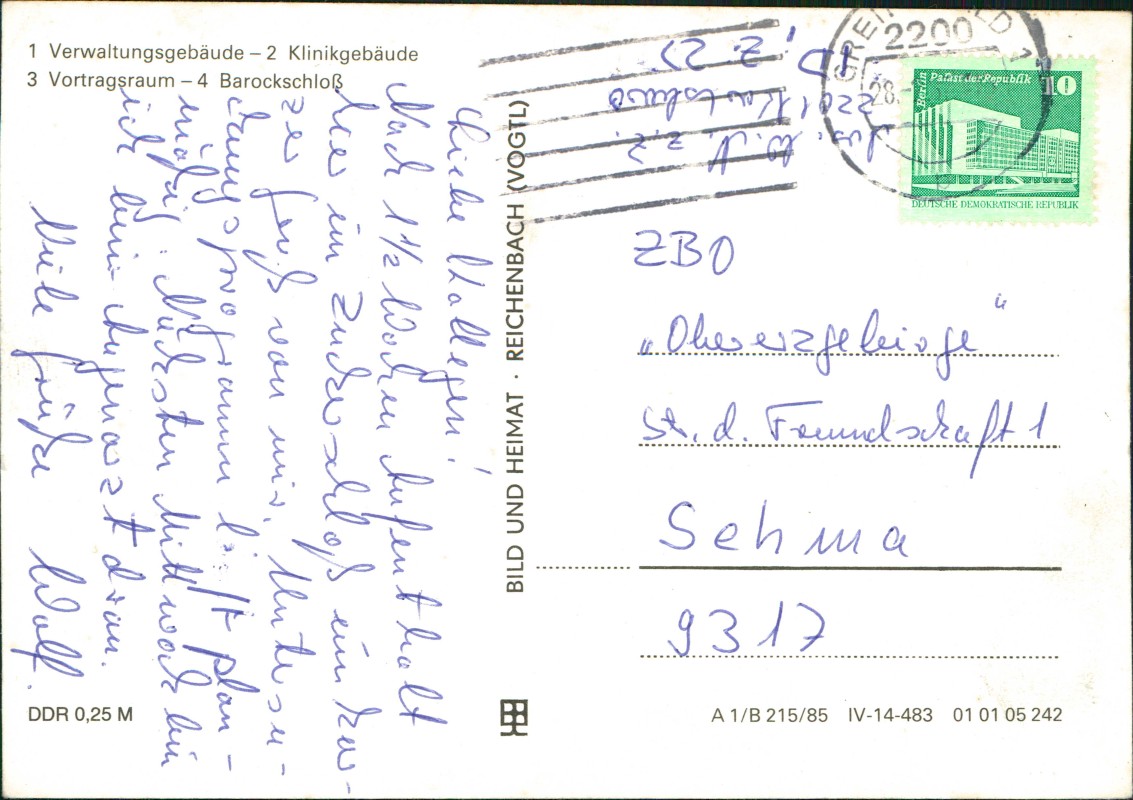 1 Verwaltungsgebäude – 2 Klinikgebäude
3 Vortragsraum – 4 Barockschloß
Liebe Kollegen!
Nach 1½ Wochen Aufenthalt
hier im Zuckerschloß ein kur-
zer Gruß von mir. Untersu-
chungsprogramm läuft plan-
mäßig. Nächsten Mittwoch bin
ich beim Augenarzt dran.
Viele Grüße Wolf.
DDR 0,25 M
BILD UND HEIMAT · REICHENBACH (VOGTL)
W. N. z. Z.
2201 Karlsburg
ID
2200
28.
Berlin Palast der Republik
10
DEUTSCHE DEMOKRATISCHE REPUBLIK
ZBO
„Obererzgebirge"
Str. d. Freundschaft 1
Sehma
9317
A 1/B 215/85 IV-14-483 01 01 05 242